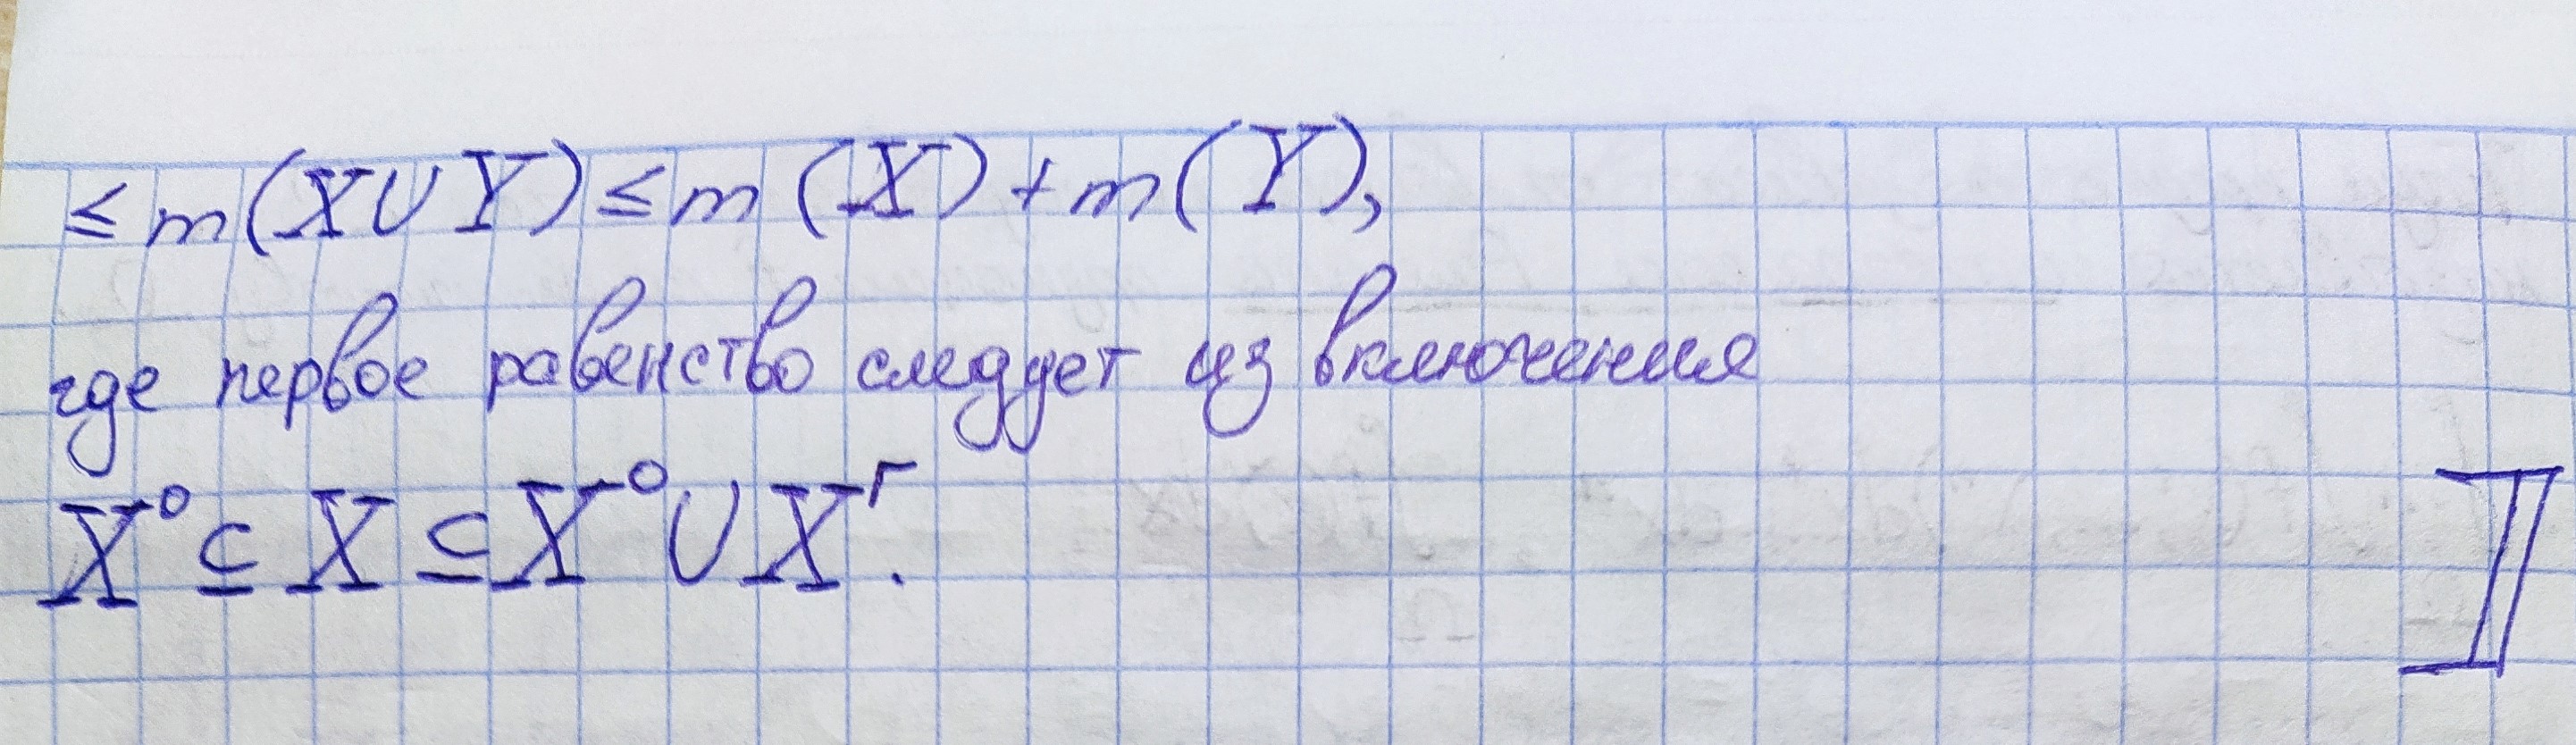 ≤ m(X∪Y) ≤ m(X) + m(Y),
где первое равенство следует из включения
X° ⊆ X ⊆ X° ∪ Xᴦ. ⟧